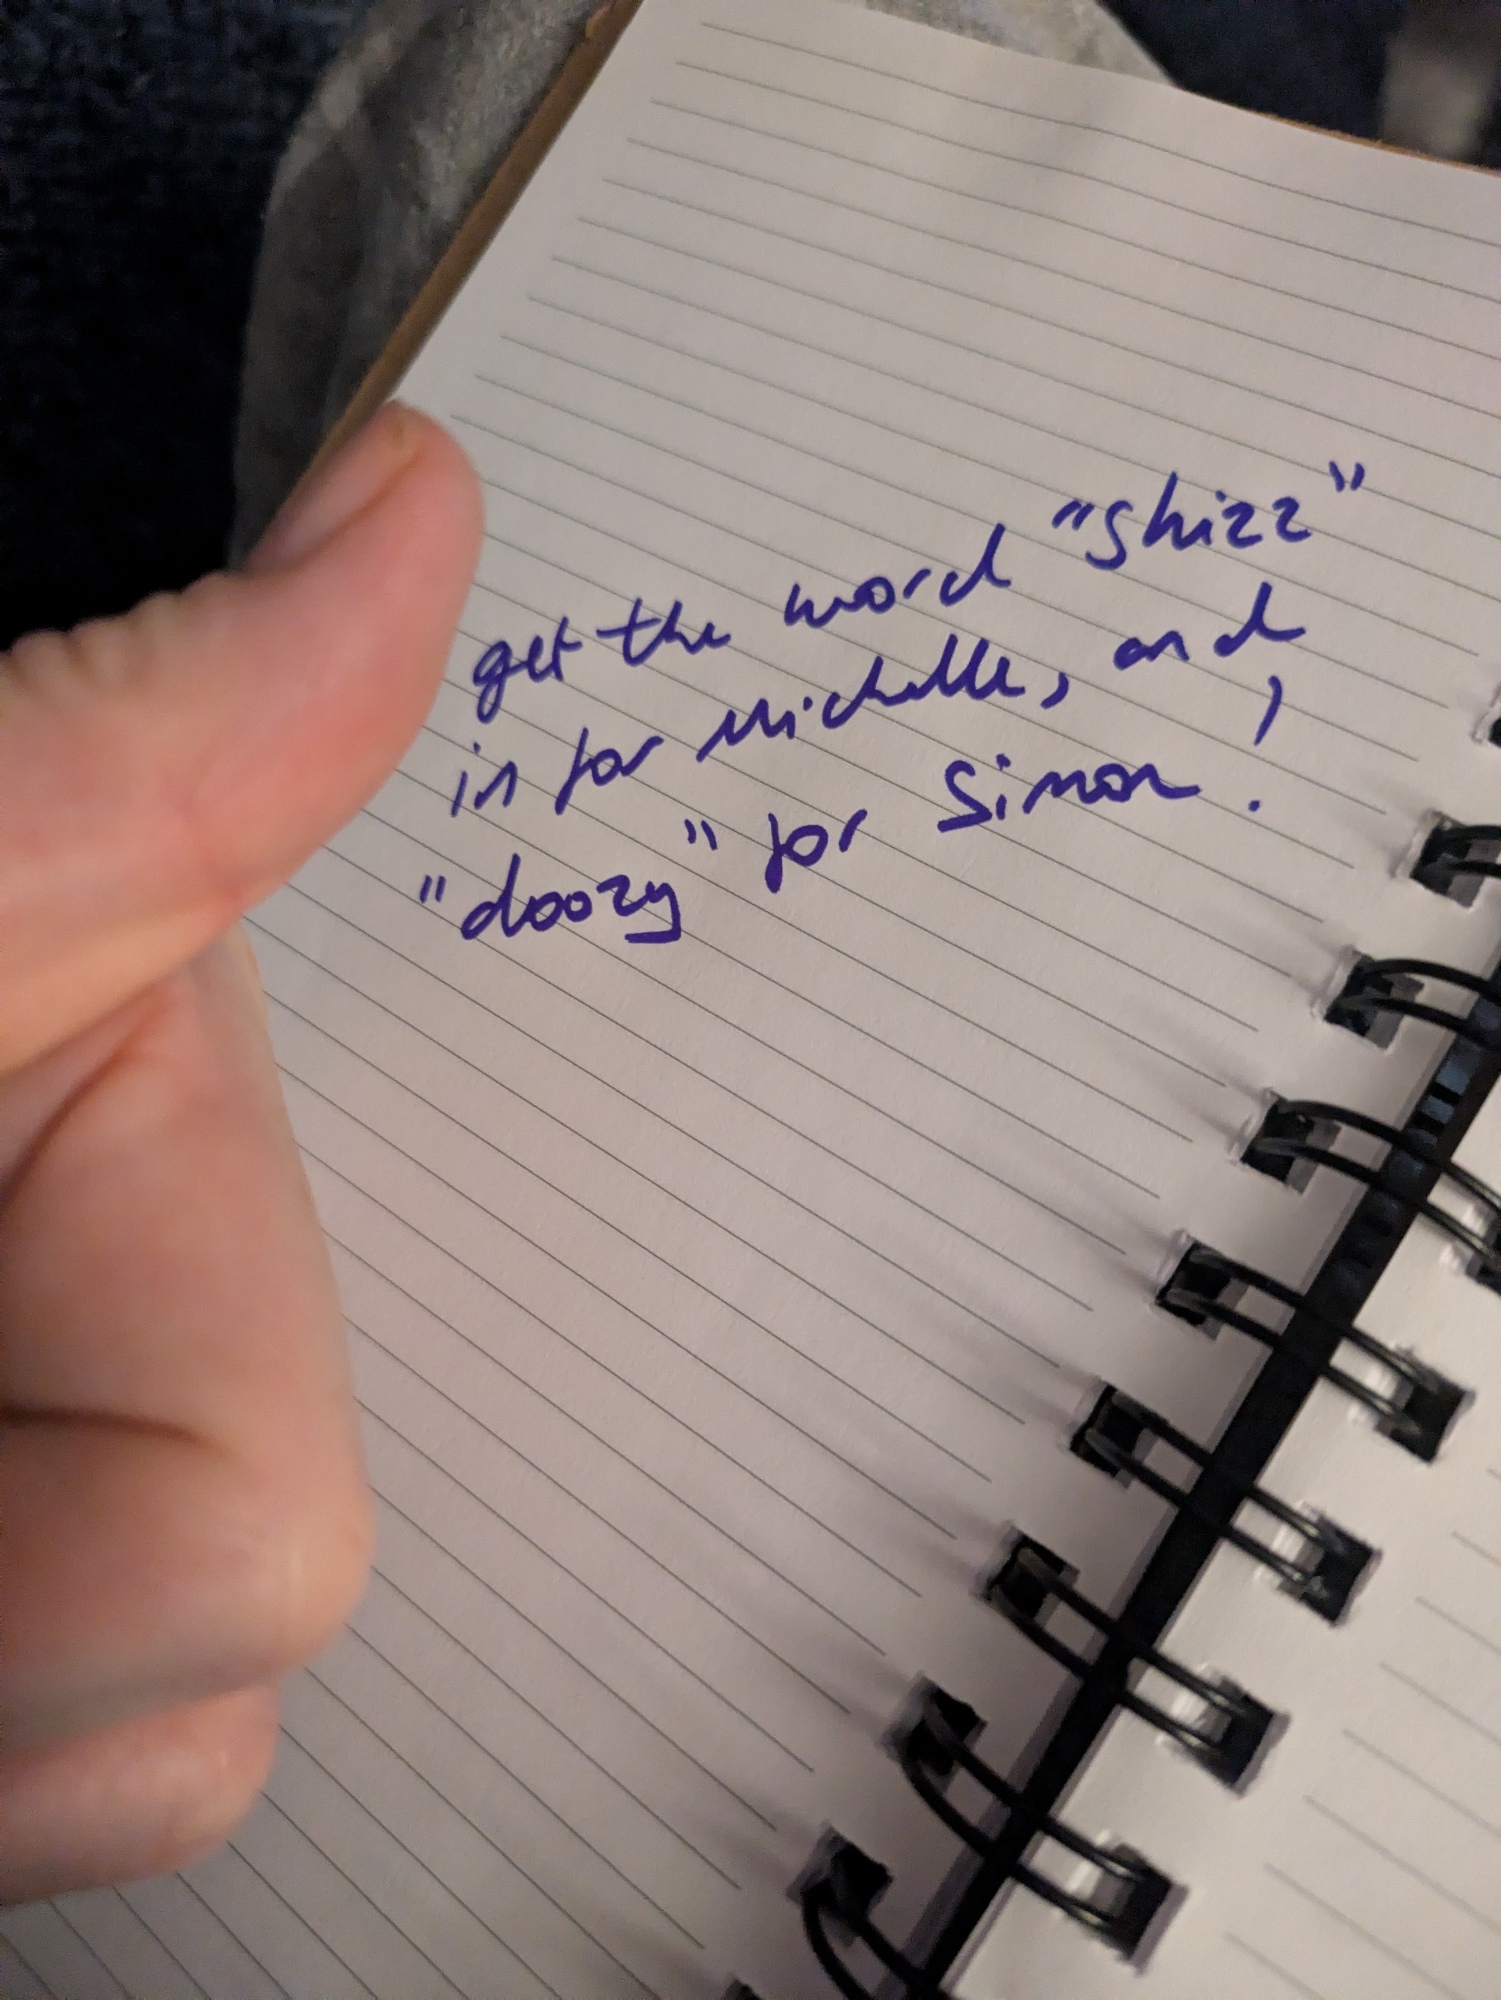 get the word "Shizz"
in for Michelle, and
"doozy" for Simon!